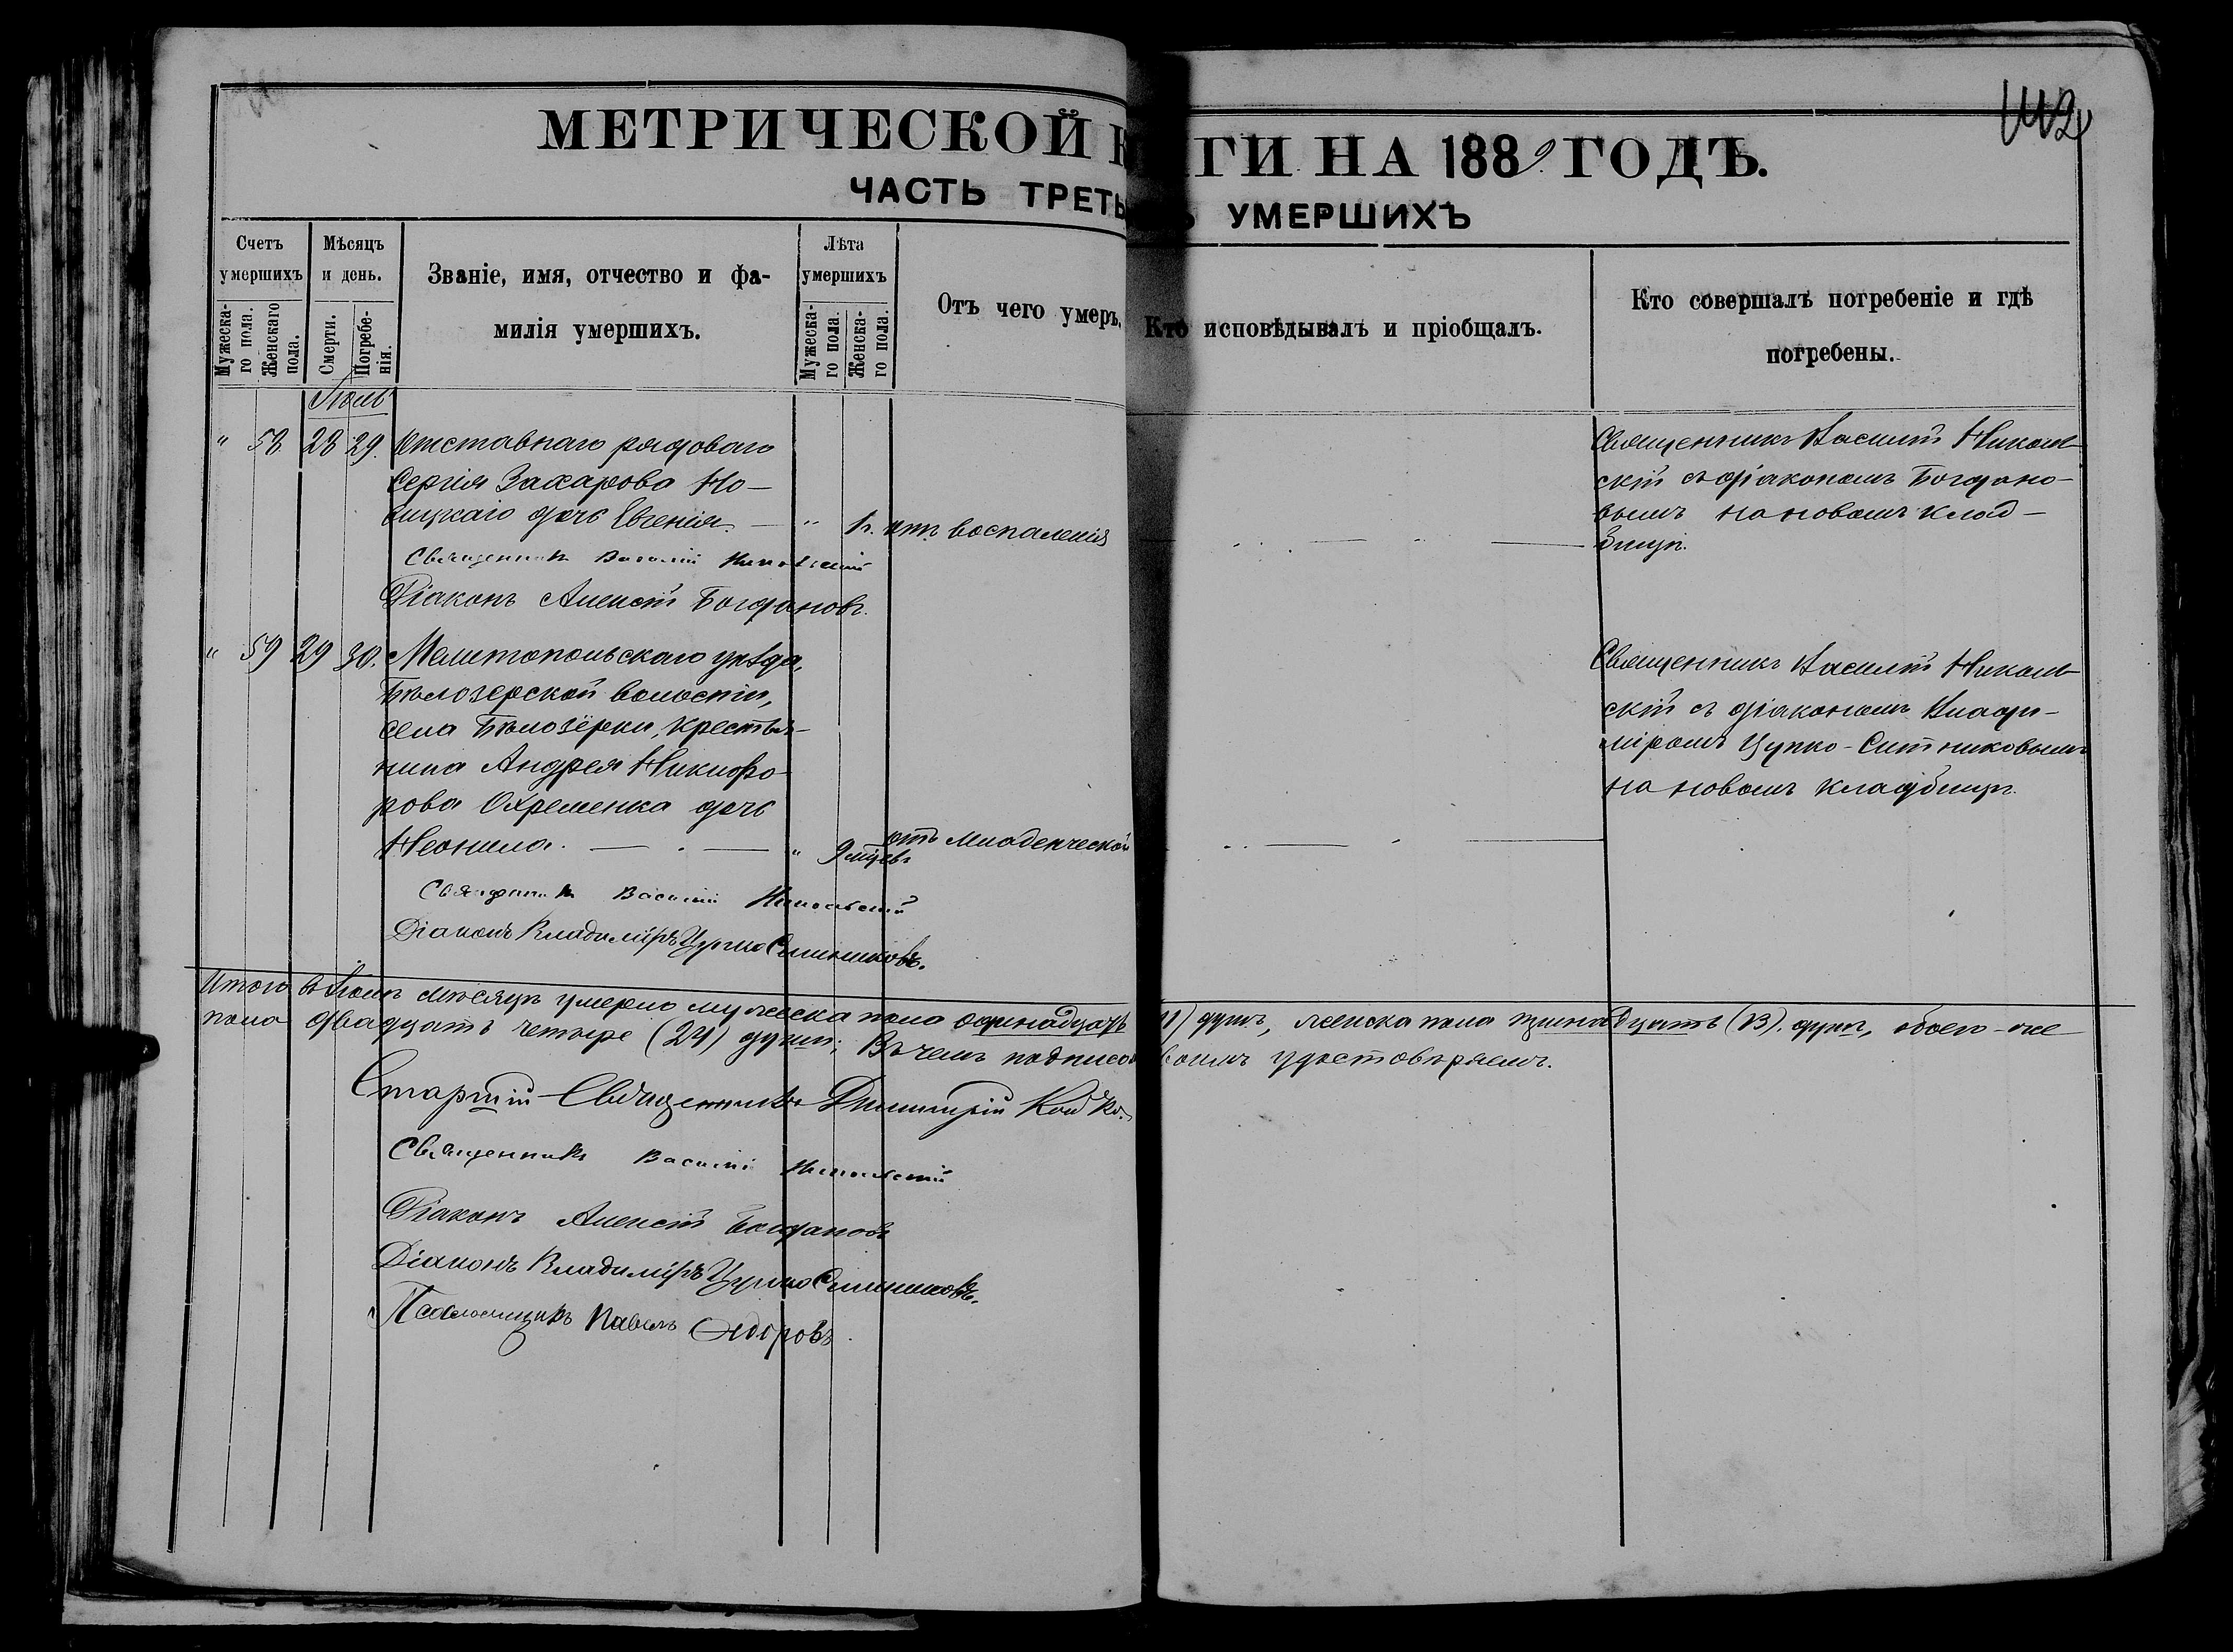 МЕТРИЧЕСКОЙ К
ГИ НА 1889 ГОДЪ.
ЧАСТЬ ТРЕТЬ
УМЕРШИХЪ
Счетъ умершихъ
Мужеска-го пола.
Женскаго пола.
Мѣсяцъ и день.
Смерти.
Погребе-нія.
Званіе, имя, отчество и фа-
милія умершихъ.
Лѣта умершихъ
Мужеска-го пола.
Женска-го пола.
Отъ чего умеръ.
Кто исповѣдывалъ и пріобщалъ.
Кто совершалъ погребеніе и гдѣ
погребены.
Іюль
" 58. 28 29. Отставнаго рядоваго
Сергія Захарова Но-
вицкаго дочь Евгенія. — " 1г. отъ воспаленія
Священникъ Василій Никольскій
Діаконъ Алексій Богдановъ.
Священникъ Василій Николь-
скій съ діакономъ Богдано-
вымъ на новомъ клад-
бищѣ.
" 59 29 30. Мелитопольскаго уѣзда,
Бѣлозерской волости,
села Бѣлозёрки, крестья-
нина Андрея Никифо-
рова Охременка дочь
Неонила. — " 9 мцевъ отъ младенческой
Священникъ Василій Никольскій
Діаконъ Владиміръ Цупко Ситниковъ.
Священникъ Василій Николь-
скій съ діакономъ Влади-
міромъ Цупко-Ситниковымъ
на новомъ кладбищѣ.
Итого въ Іюлѣ мѣсяцѣ умерло мужеска пола одинадцать 11) душъ, женска пола тринадцать (13). душъ, обоего-же
пола двадцать четыре (24) души; Въ чемъ подписомъ своимъ удостовѣряемъ.
Старшій Священникъ Димитрій
Священникъ Василій Никольскій
Діаконъ Алексій Богдановъ
Діаконъ Владиміръ Цупко Ситниковъ.
Псаломщикъ Павелъ Ѳедоровъ.